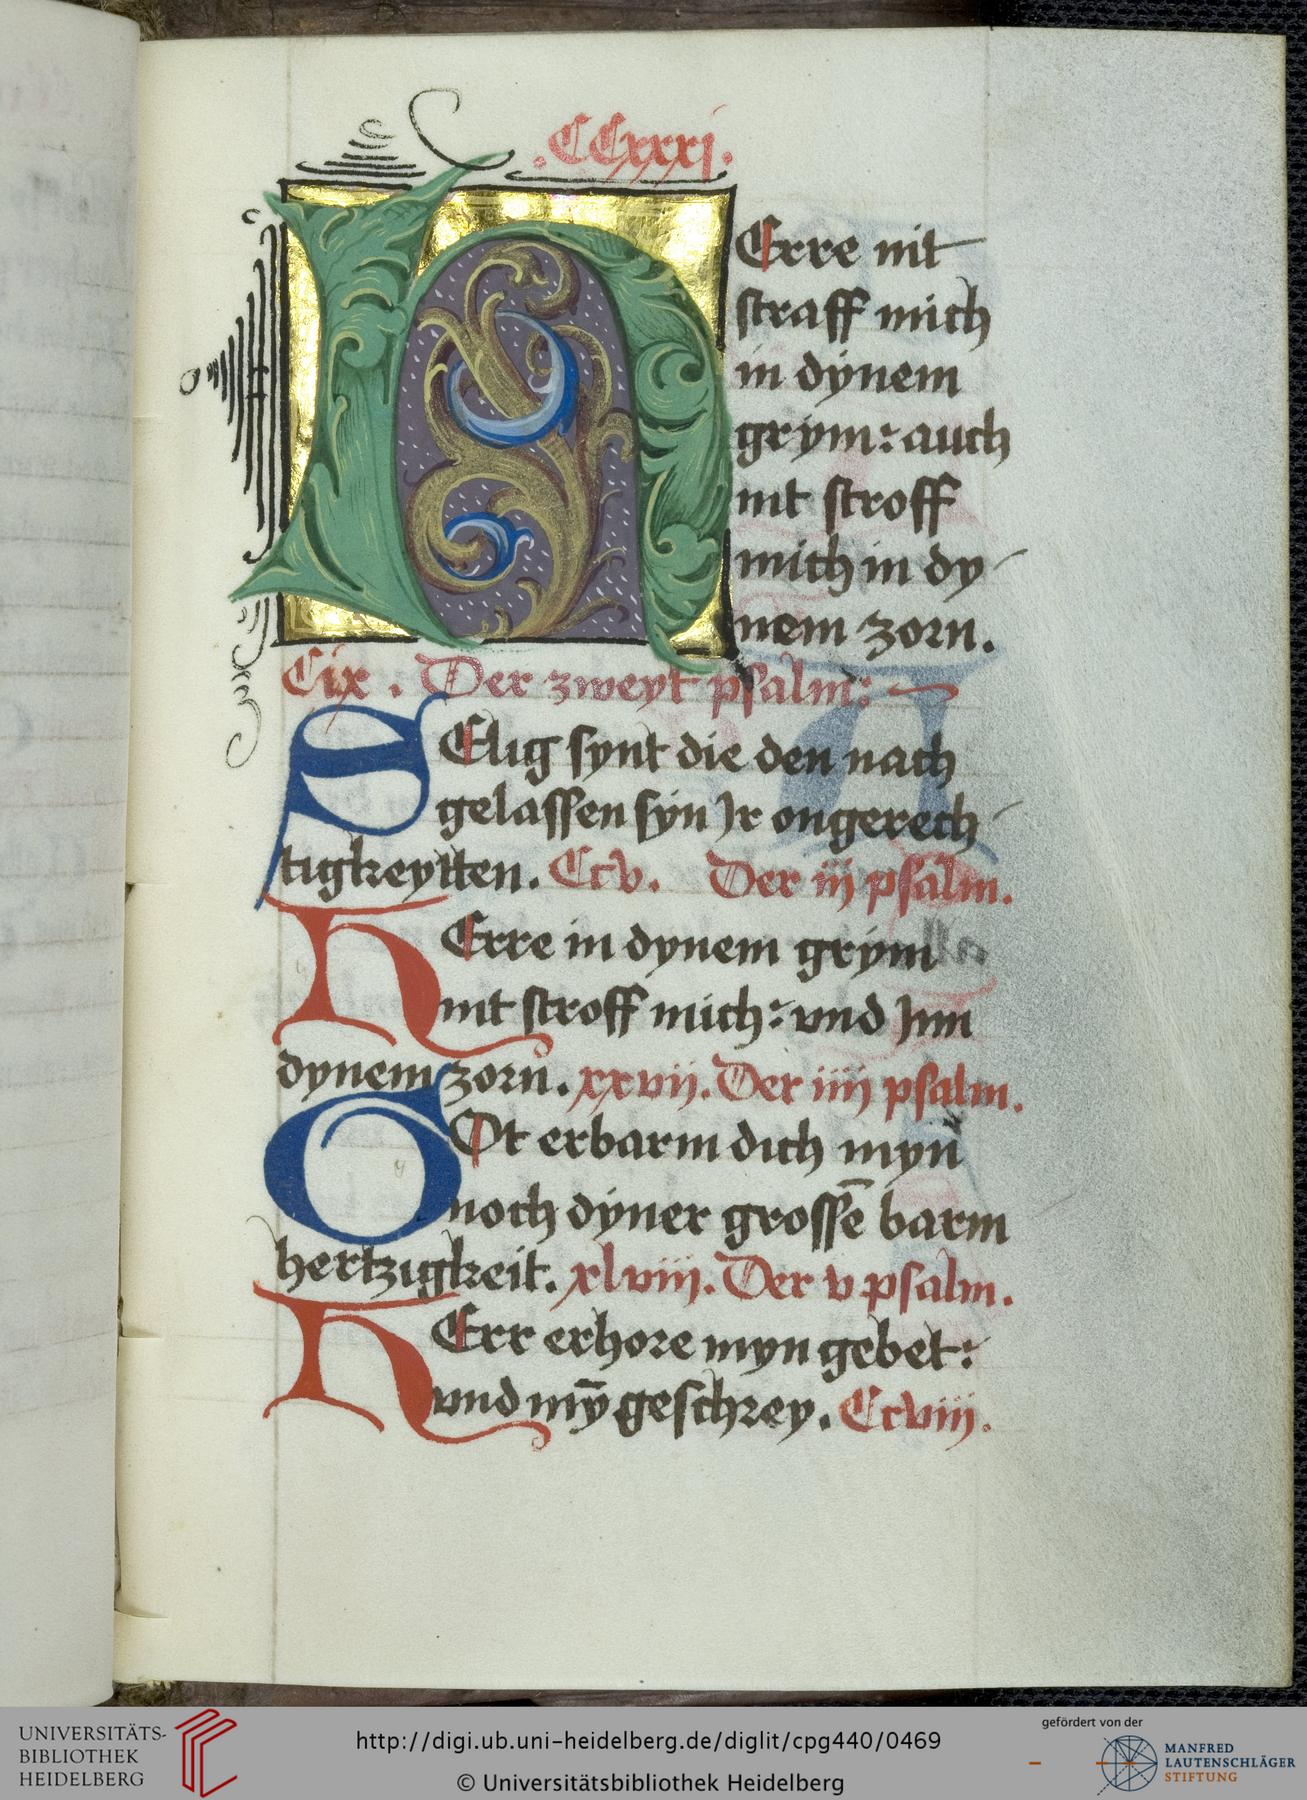 .CCxxxj.
HErre nit
straff mich
in dÿnem
grÿm: auch
nit stroff
mich in dy-
nem zorn.
Cix. Der zweyt psalm:
SElig synt die den nach
gelassen sÿn Jr ongerech-
tigkeytten. Ccv. Der iij psalm.
HErre in dynem grÿm
nit stroff mich: vnd Jnn
dynem zorn. xxvij. Der iiij psalm.
GOt erbarm dich myn
noch dÿner grossē barm
hertzigkeit. xlviij. Der v psalm.
HErr erhore myn gebet:
vnd mȳ geschrey. Ccviij.
UNIVERSITÄTS-
BIBLIOTHEK
HEIDELBERG
http://digi.ub.uni-heidelberg.de/diglit/cpg440/0469
© Universitätsbibliothek Heidelberg
gefördert von der
MANFRED
LAUTENSCHLÄGER
STIFTUNG